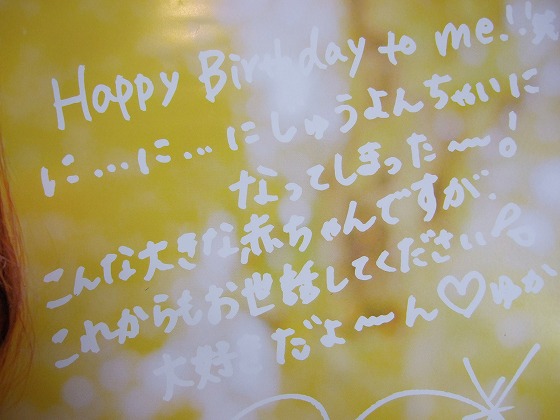 Happy Birthday to me!! 笑
に…に…にしゅうよんちゃいに
なってしまった〜!
こんな大きな赤ちゃんですが、
これからもお世話してください
大好きだょ〜ん♡ゆか